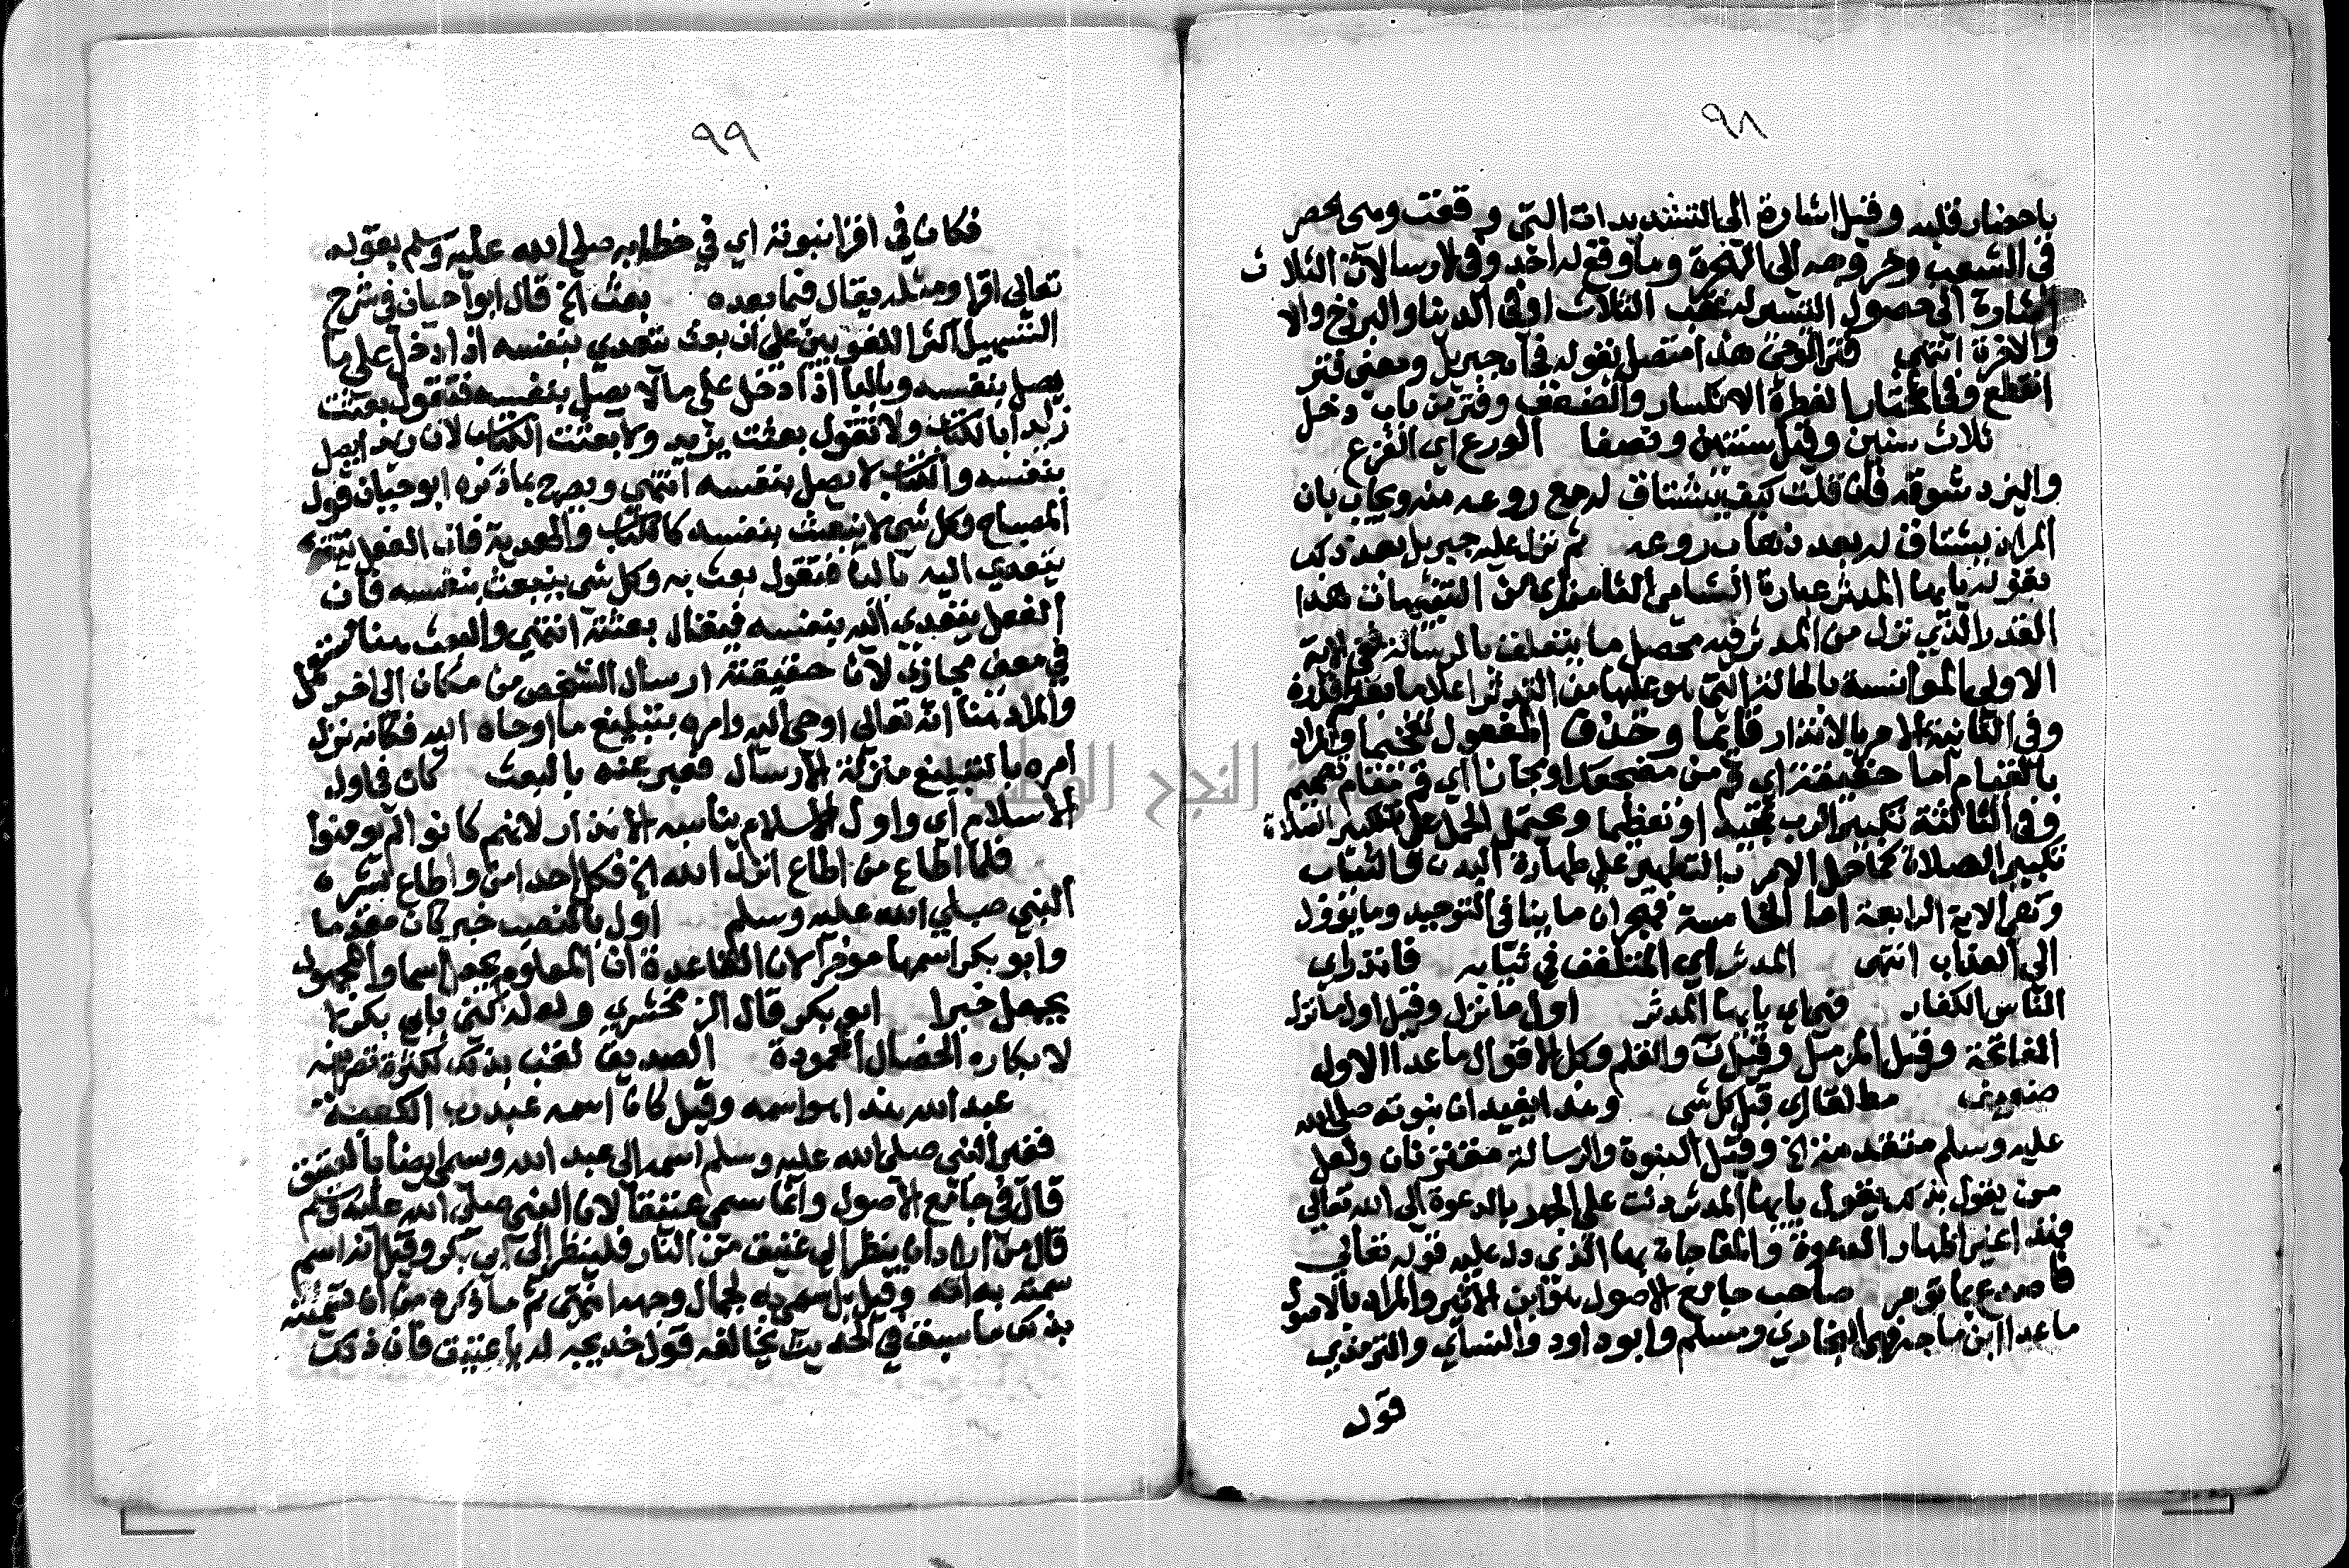 ٩٨
باحضار قلبه وقيل اشارة الى التشديدات التي وقعت وهي الحصر
في الشعب وخروجه الى الهجرة وما وقع له احد وفي الارسالات الثلاث
اشارة الى حصول التيسير لتعقب الثلاث او في الدنيا والبرزخ والا
والاخرة انتهى فتر الوحي هذا متصل بقوله فجاءه جبريل ومعنى فتر
انقطع وفي المختار الفطرة الانكسار والضعف وفتر من باب دخل
ثلاث سنين وقيل سنتين ونصفا الورع اي الفزع
واليزد شوقه فان قلت كيف يشتاق له مع روعه منه ويجاب بان
المراد يشتاق له بعد ذهاب روعه ثم نزل عليه جبريل بعد ذلك
بقوله يا ايها المدثر عبارة الشامي الثامن اي من التنبيهات هذا
القدر الذي نزل من المدثر فيه محصل ما يتعلق بالرسالة ففي الاية
الاولى المؤانسة بالحالة التي هو عليها من التدثر اعلاما بعظم قدره
وفي الثانية الامر بالانذار قائما وحذف المفعول تفخيما والمراد
بالقيام اما حقيقة اي قم من مضجعك او مجازا اي قم مقام تصميم
وفي الثالثة تكبير الرب تمجيدا وتعظيما ويحتمل الحمل على تكبير الصلاة
تكبير الصلاة كما حمل الامر بالتطهير على طهارة البدن والثياب
وهي الاية الرابعة اما الخامسة فهجران ما ينافي التوحيد وما يؤول
الى العذاب انتهى المدثر اي المتلفف في ثيابه فانذر اي
الناس الكفار فهي اي يا ايها المدثر اول ما نزل وقيل اول ما نزل
الفاتحة وقيل المزمل وقيل ن والقلم وكل الاقوال ما عدا الاول
ضعيف مطلقا اي قبل كل شي وهذا يفيد ان نبوته صلى الله
عليه وسلم متقدمة الخ وقيل النبوة والرسالة مقترنتان ولعل
من يقول بذلك يقول يا ايها المدثر دلت على الجهر بالدعوة الى الله تعالى
فهذا غير اظهار الدعوة والمفاجاة بها الذي دل عليه قوله تعالى
فاصدع بما تؤمر صاحب جامع الاصول هو ابن الاثير والمراد بالاصول
ما عدا ابن ماجه فهي البخاري ومسلم وابو داود والنسائي والترمذي
قوله
٩٩
فكان في اقرا نبوته اي في خطابه صلى الله عليه وسلم بقوله
تعالى اقرا ومثله يقال فيما بعده بعث الخ قال ابو حيان في شرح
التسهيل اكثر اللغويين على ان بعث تتعدي بنفسه اذا دخل على ما
يصل بنفسه وبالبا اذا دخل على ما لا يصل بنفسه فتقول بعثت
زيدا بالكتاب ولا تقول بعثت بزيد ولا بعثت الكتاب لان زيدا يصل
بنفسه والكتاب لا يصل بنفسه انتهى ويصرح بما ذكره ابو حيان قول
المصباح وكل شي لا ينبعث بنفسه كالكتاب والهدية فان الفعل
يتعدي اليه بالبا فتقول بعث به وكل شي ينبعث بنفسه فان
الفعل يتعدي اليه بنفسه فيقال بعثته انتهى والبعث هنا مستعمل
في معنى مجازي لان حقيقته ارسال الشخص من مكان الى اخر
والمراد هنا انه تعالى اوحى اليه وامره بتبليغ ما اوحاه اليه فكانه نزل
امره بالتبليغ منزلة الارسال فعبر عنه بالبعث كان في اول
الاسلام اي واول الاسلام يناسبه الانذار لانهم كانوا لم يومنوا
فلما اطاع من اطاع انزل الله الخ فكل احد امن واطاع بشره
النبي صلى الله عليه وسلم اول بالنصب خبر كان مقدما
وابو بكر اسمها مؤخرا لان القاعدة ان المعلوم يجعل اسما والمجهول
يجعل خبرا ابو بكر قال الزمخشري ولعله كني بابي بكر
لابتكاره الخصال المحمودة الصديق لقب بذلك لكثرة تصديقه
عبد الله هذا هو اسمه وقيل كان اسمه عبد رب الكعبة
فغير النبي صلى الله عليه وسلم اسمه الى عبد الله وسمي ايضا بالعتيق
قال في جامع الاصول وانما سمي عتيقا لان النبي صلى الله عليه وسلم
قال من اراد ان ينظر الى عتيق من النار فلينظر الى ابي بكر وقيل انه اسم
سمته به امه وقيل بل سمي به لجمال وجهه انتهى ثم ما ذكره من ان تسميته
بذلك ما سبق في الحديث يخالفه قول خديجة له يا عتيق فان ذلك